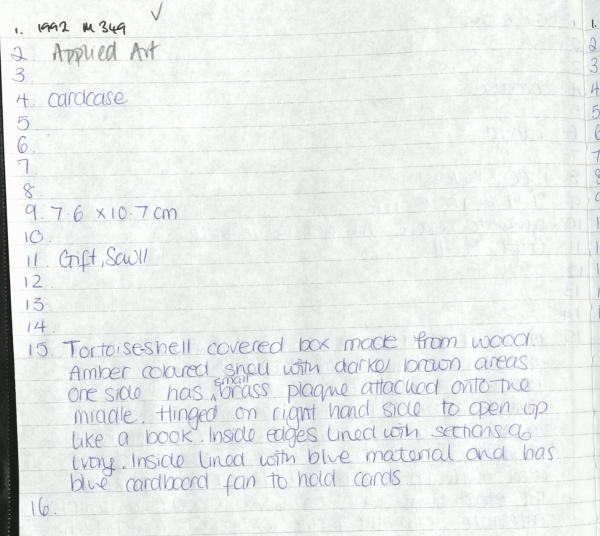 1. 1992 M 349 ✓
2 Applied Art
3
4. cardcase
5
6.
7
8
9. 7.6 x 10.7 cm
10.
11. Gift, Sawll
12
13
14
15 Tortoise-shell covered box made from wood.
Amber coloured shell with darker brown areas.
one side has small brass plaque attached onto the
middle. Hinged on right hand side to open up
like a book. Inside edges lined with sections of
ivory. Inside lined with blue material and has
blue cardboard fan to hold cards
16.